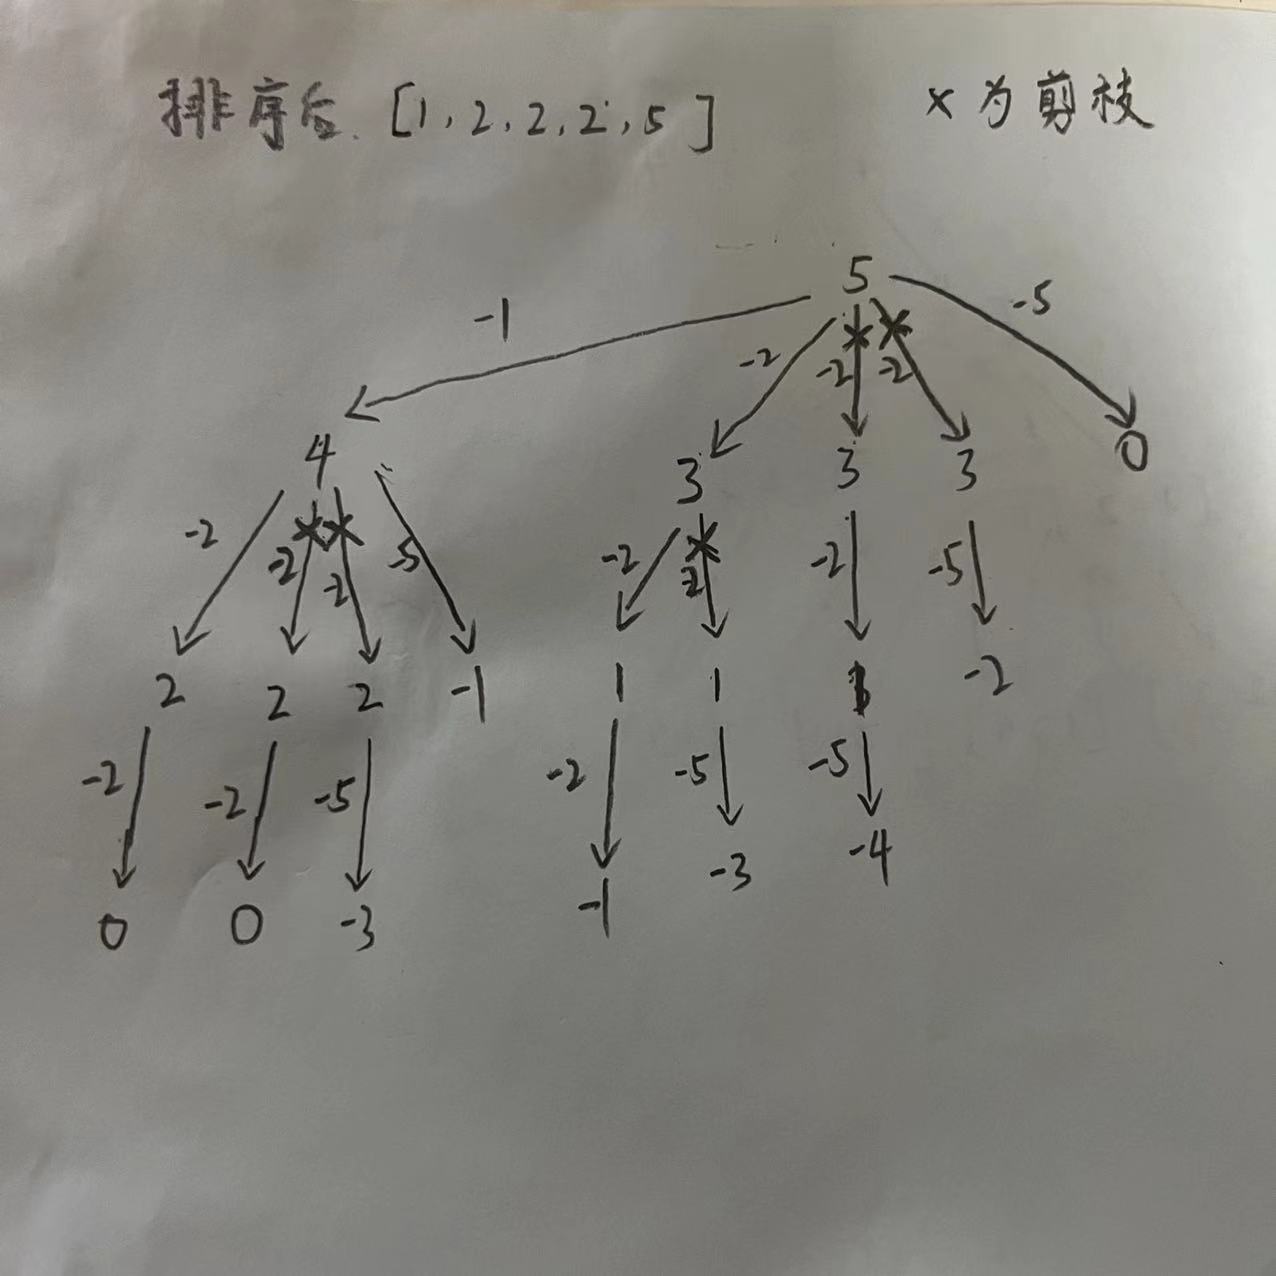 排序后. [1, 2, 2, 2, 5]
×为剪枝
5
-1 -2 -2 -2 -5
4 3 3 3 0
-2 -2 -2 -5 -2 -2 -2 -5
2 2 2 -1 1 1 1 -2
-2 -2 -5 -2 -5 -5
-3 -4
0 0 -3 -1